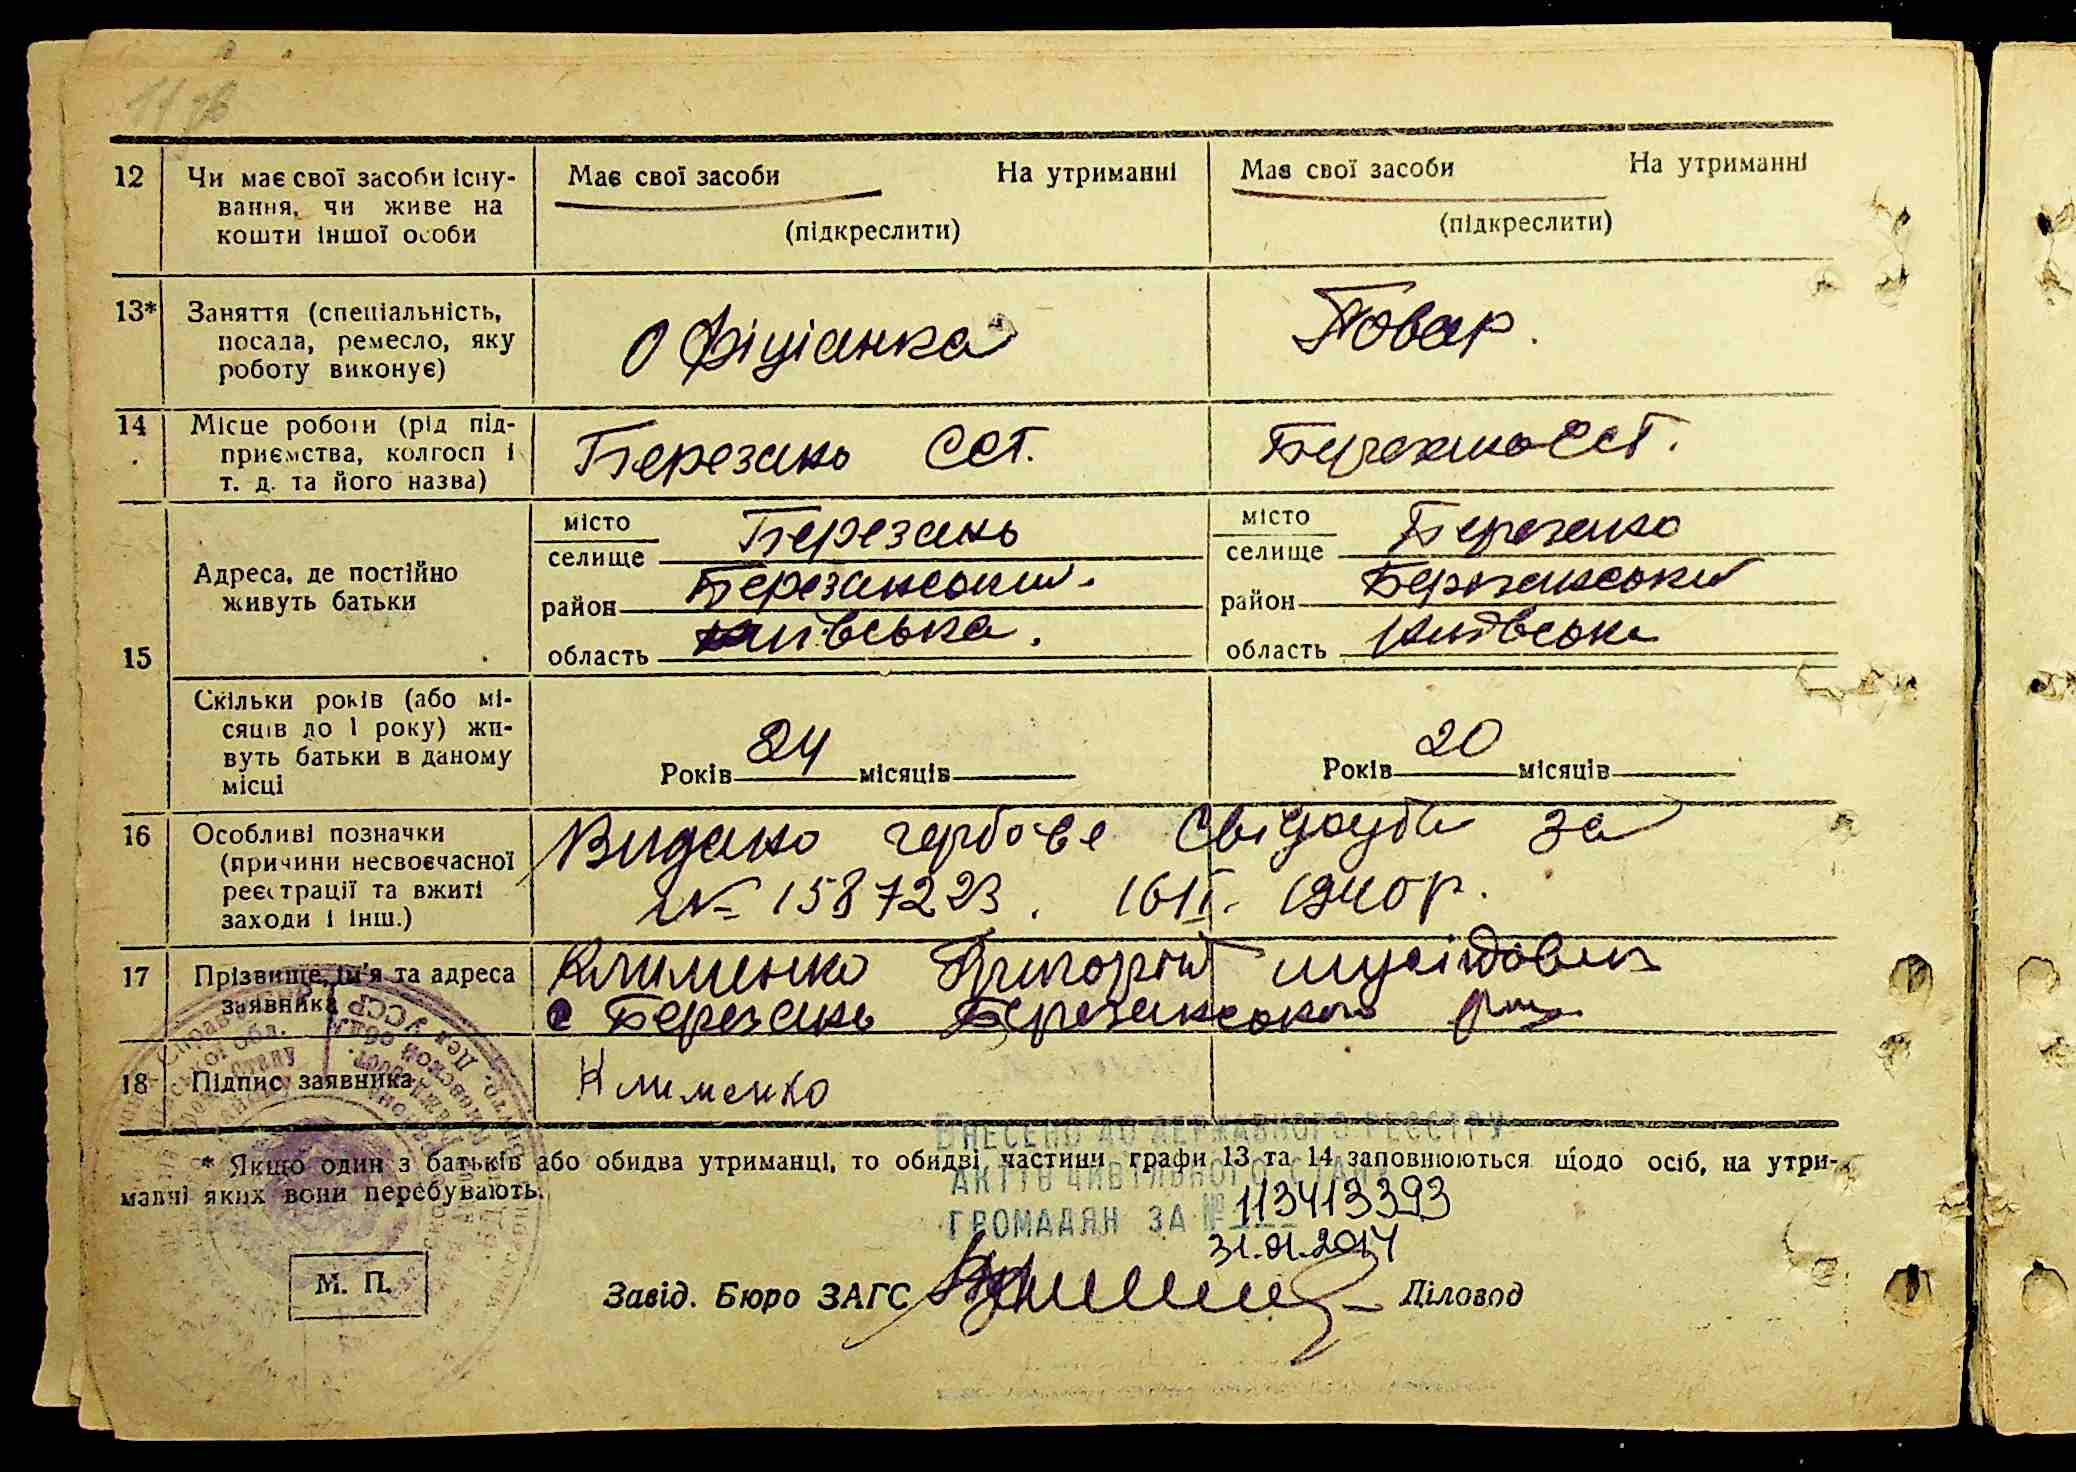 12 Чи має свої засоби існу- Має свої засоби На утриманні Має свої засоби На утриманні
вання, чи живе на
кошти іншої особи (підкреслити) (підкреслити)
13* Заняття (спеціальність,
посада, ремесло, яку Офіціанка Повар.
роботу виконує)
14 Місце роботи (рід під-
приємства, колгосп і Березань ССТ. Березань ССТ.
т. д. та його назва)
15 Адреса, де постійно
живуть батьки
місто
селище Березань
район Березанський.
область Київська.
місто
селище Березань
район Березанський
область Київська
Скільки років (або мі-
сяців до 1 року) жи-
вуть батьки в даному
місці
Років 24 місяців
Років 20 місяців
16 Особливі позначки
(причини несвоєчасної
реєстрації та вжиті
заходи і інш.)
Видано гербове за
№ 1587223. 16 II. 1940 р.
17 Прізвище, ім'я та адреса
заявника
Клименко Григорій
с Березань Березанського
18 Підпис заявника Клименко
ВНЕСЕНО ДО ДЕРЖАВНОГО РЕЄСТРУ
АКТІВ ЦИВІЛЬНОГО СТАНУ
ГРОМАДЯН ЗА № 113413393
31.01.2014
* Якщо один з батьків або обидва утриманці, то обидві частини графи 13 та 14 заповнюються щодо осіб, на утри-
манні яких вони перебувають.
М. П.
Завід. Бюро ЗАГС Діловод